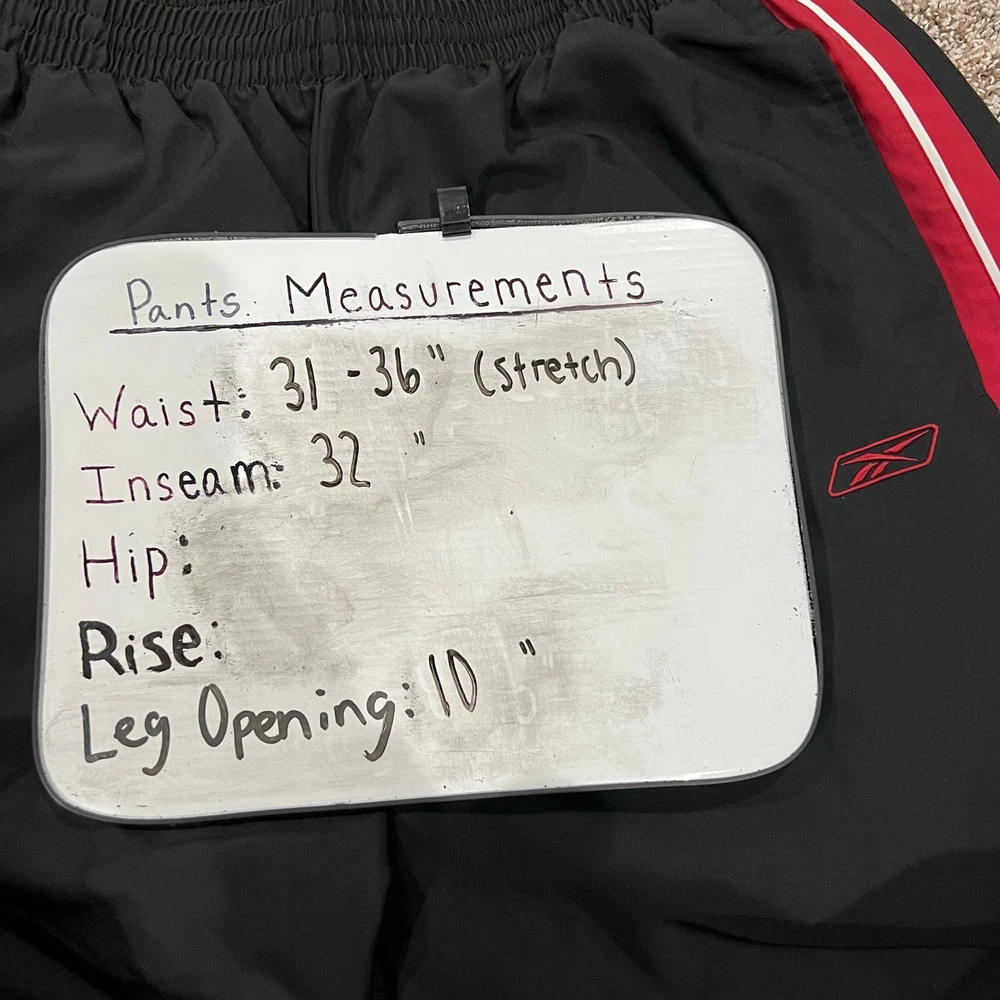 Pants Measurements
Waist: 31 - 36" (stretch)
Inseam: 32 "
Hip:
Rise:
Leg Opening: 10 "